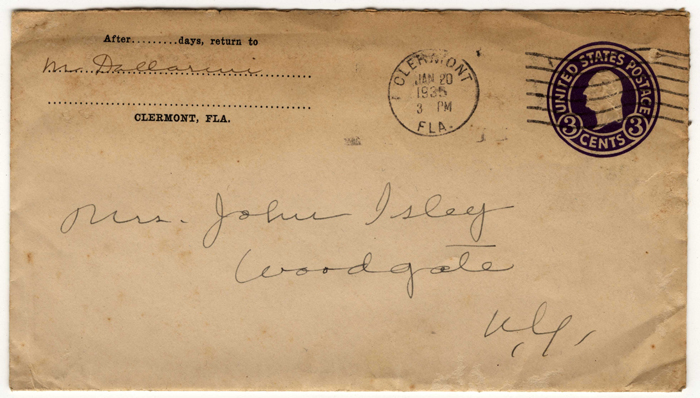 After.........days, return to
Mr. Dallarini
CLERMONT, FLA.
CLERMONT
JAN 20
1935
3 PM
FLA.
UNITED STATES POSTAGE
3 CENTS 3
Mrs. John Isley
Woodgate
N.Y.